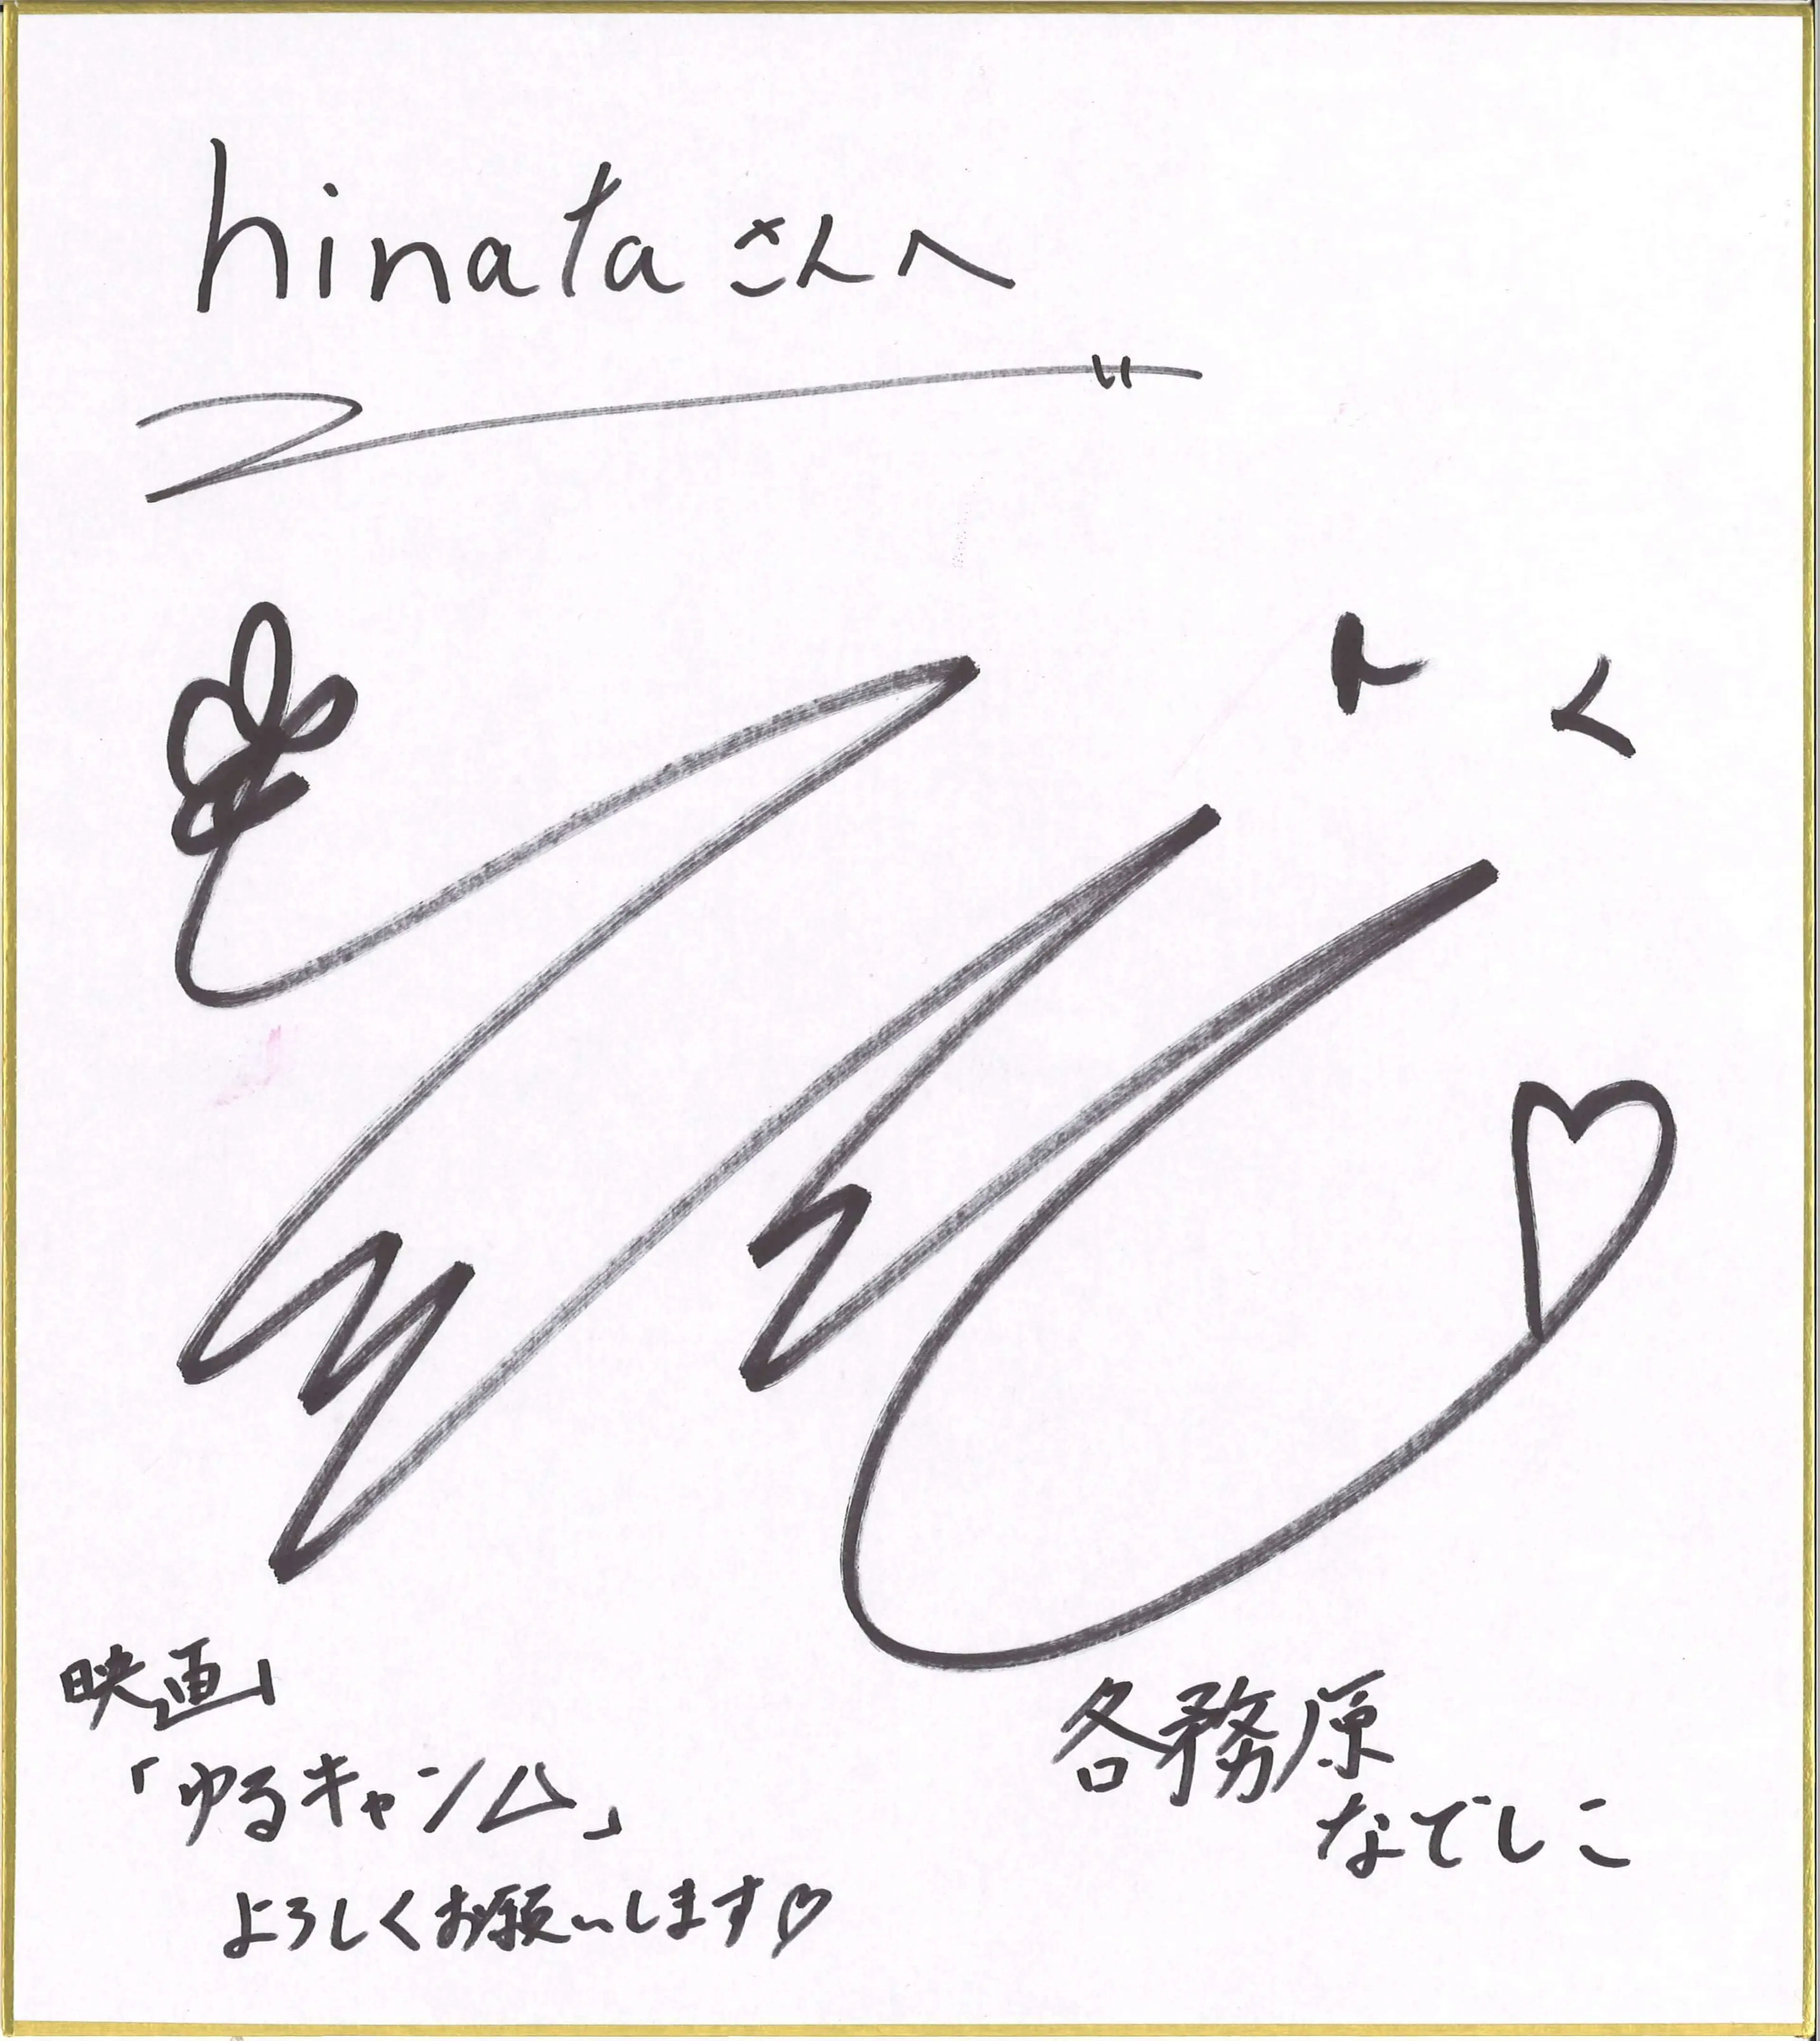 hinataさんへ
映画
「ゆるキャン△」
よろしくお願いします♡
各務原
なでしこ